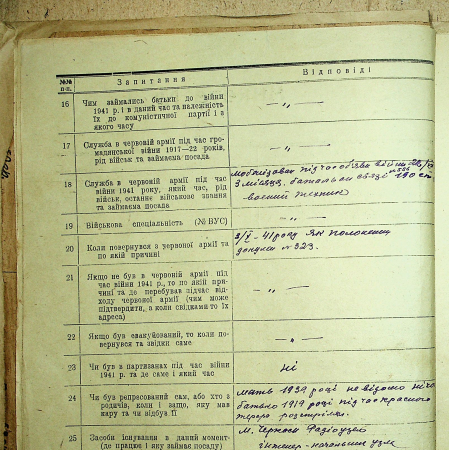 №№ п-п. Запитання Відповіді
16 Чим займались батьки до війни
1941 р. і в даний час та належність
їх до комуністичної партії і з
якого часу — „ —
17 Служба в червоній армії під час гро-
мадянської війни 1917—22 років,
рід військ та займаєма посада — „ —
18 Служба в червоній армії під час
війни 1941 року, який час, рід
військ, останнє військове звання
та займаєма посада
мобілізован під час об'яви війни
3 місяця, батальон связі 190
воєний технік
19 Військова спеціальність (№ ВУС) — „ —
20 Коли повернувся з червоної армії та
по якій причині
3/X - 41 року як полонений
документ № 323.
21 Якщо не був в червоній армії під
час війни 1941 р., то по якій при-
чині та де перебував підчас від-
ходу червоної армії (чим може
підтвердити, а коли свідками то їх
адреса) — „ —
22 Якщо був евакуйований, то коли по-
вернувся та звідки саме — „ —
23 Чи був в партизанах під час війни
1941 р. та де саме і який час ні
24 Чи був репресований сам, або хто з
родичів, коли і защо, яку мав
кару та чи відбув її
мать 1934 році не відомо
батько 1919 році під час красного
терора розстрілян.
25 Засоби існування в даний момент
(де працює і яку займає посаду)
м. Черкаси Радіовузол
інженер - начальник узла